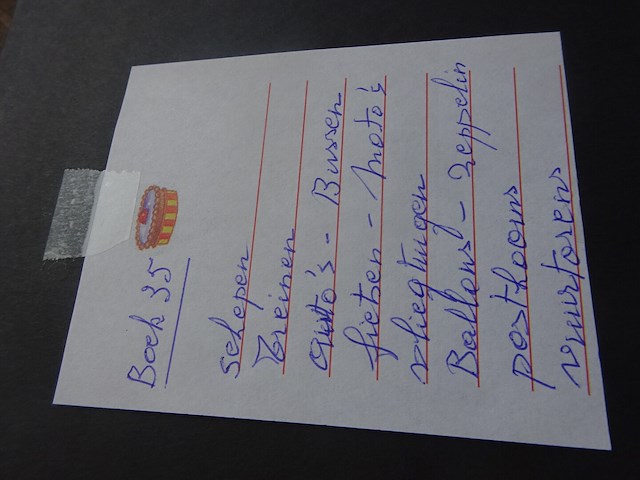 Boek 35
schepen
Treinen
Auto's - Bussen
fietsen - Moto's
vliegtuigen
Ballons - Zeppelin
posthoorns
vuurtorens